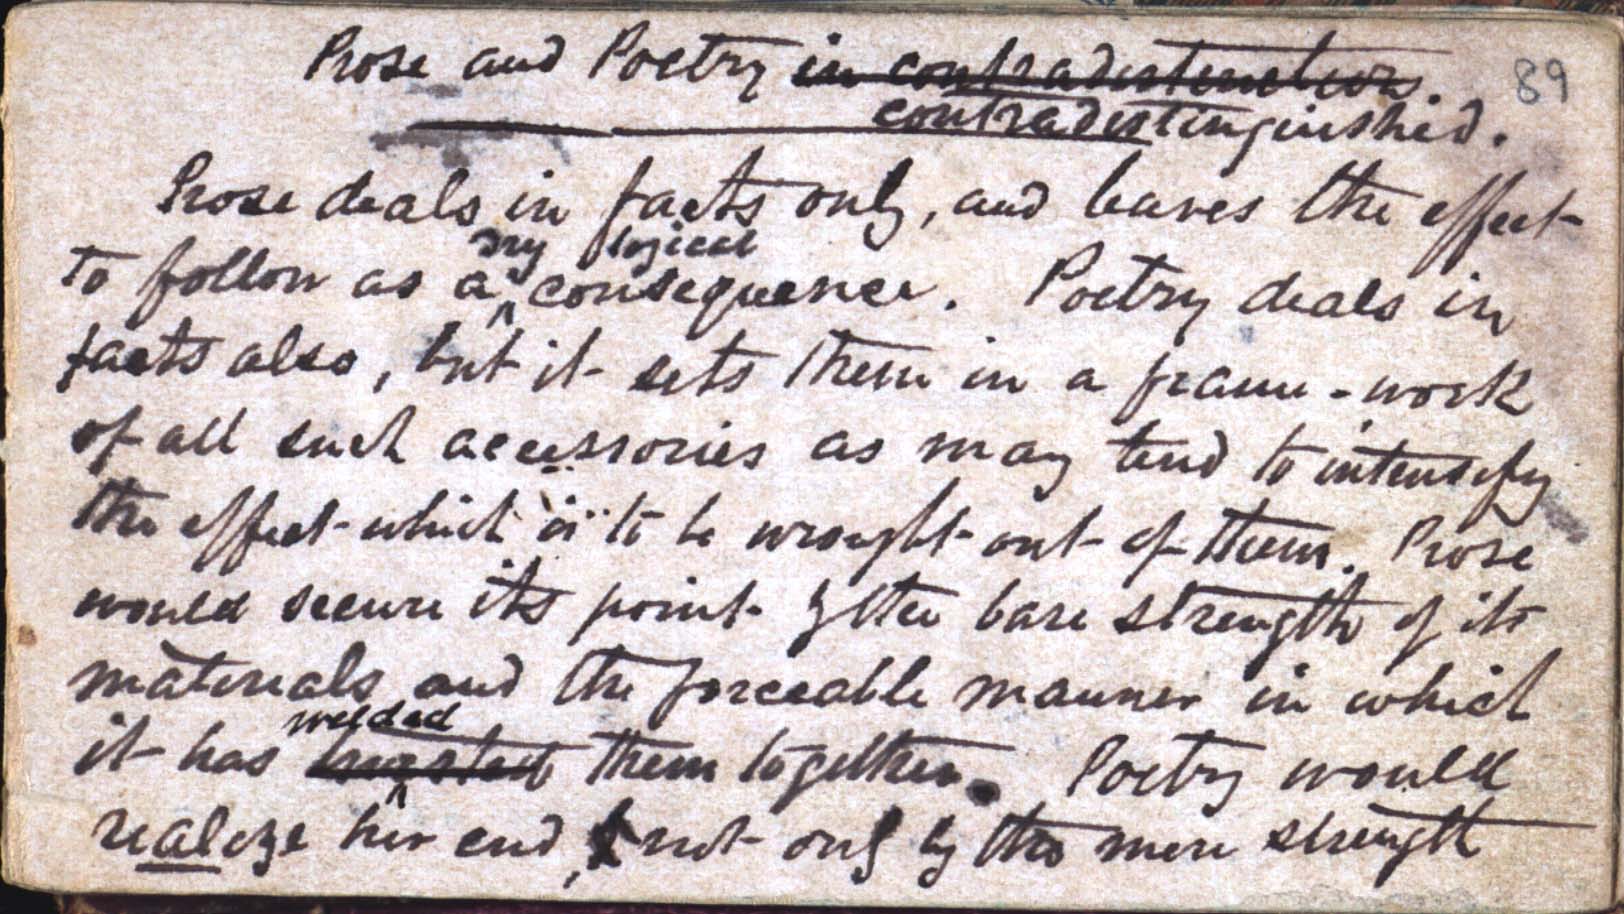 Prose and Poetry in contradistinction.
89
contradistinguished.
Prose deals in facts only, and leaves the effect
dry logical
to follow as a consequence. Poetry deals in
facts also, but it sets them in a frame-work
of all such accessories as may tend to intensify
the effect which is to be wrought out of them. Prose
would secure its point by the bare strength of its
materials and the forceable manner in which
welded
it has them together. Poetry would
realize her end, not only by the mere strength